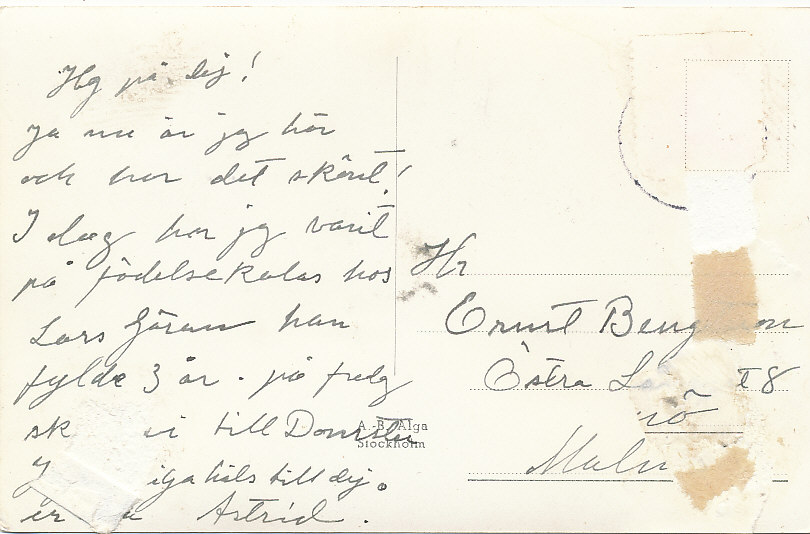 Hej på dig!
Ja nu är jag här
och har det skönt!
I dag har jag varit
på födelsekalas hos
Lars Göran han
fylde 3 år. på fredag
sk vi till
iga häls till dej.
Astrid.
A.-B. Alga
Stockholm
Hr
Ernst Beng on
Östra 8
Malm